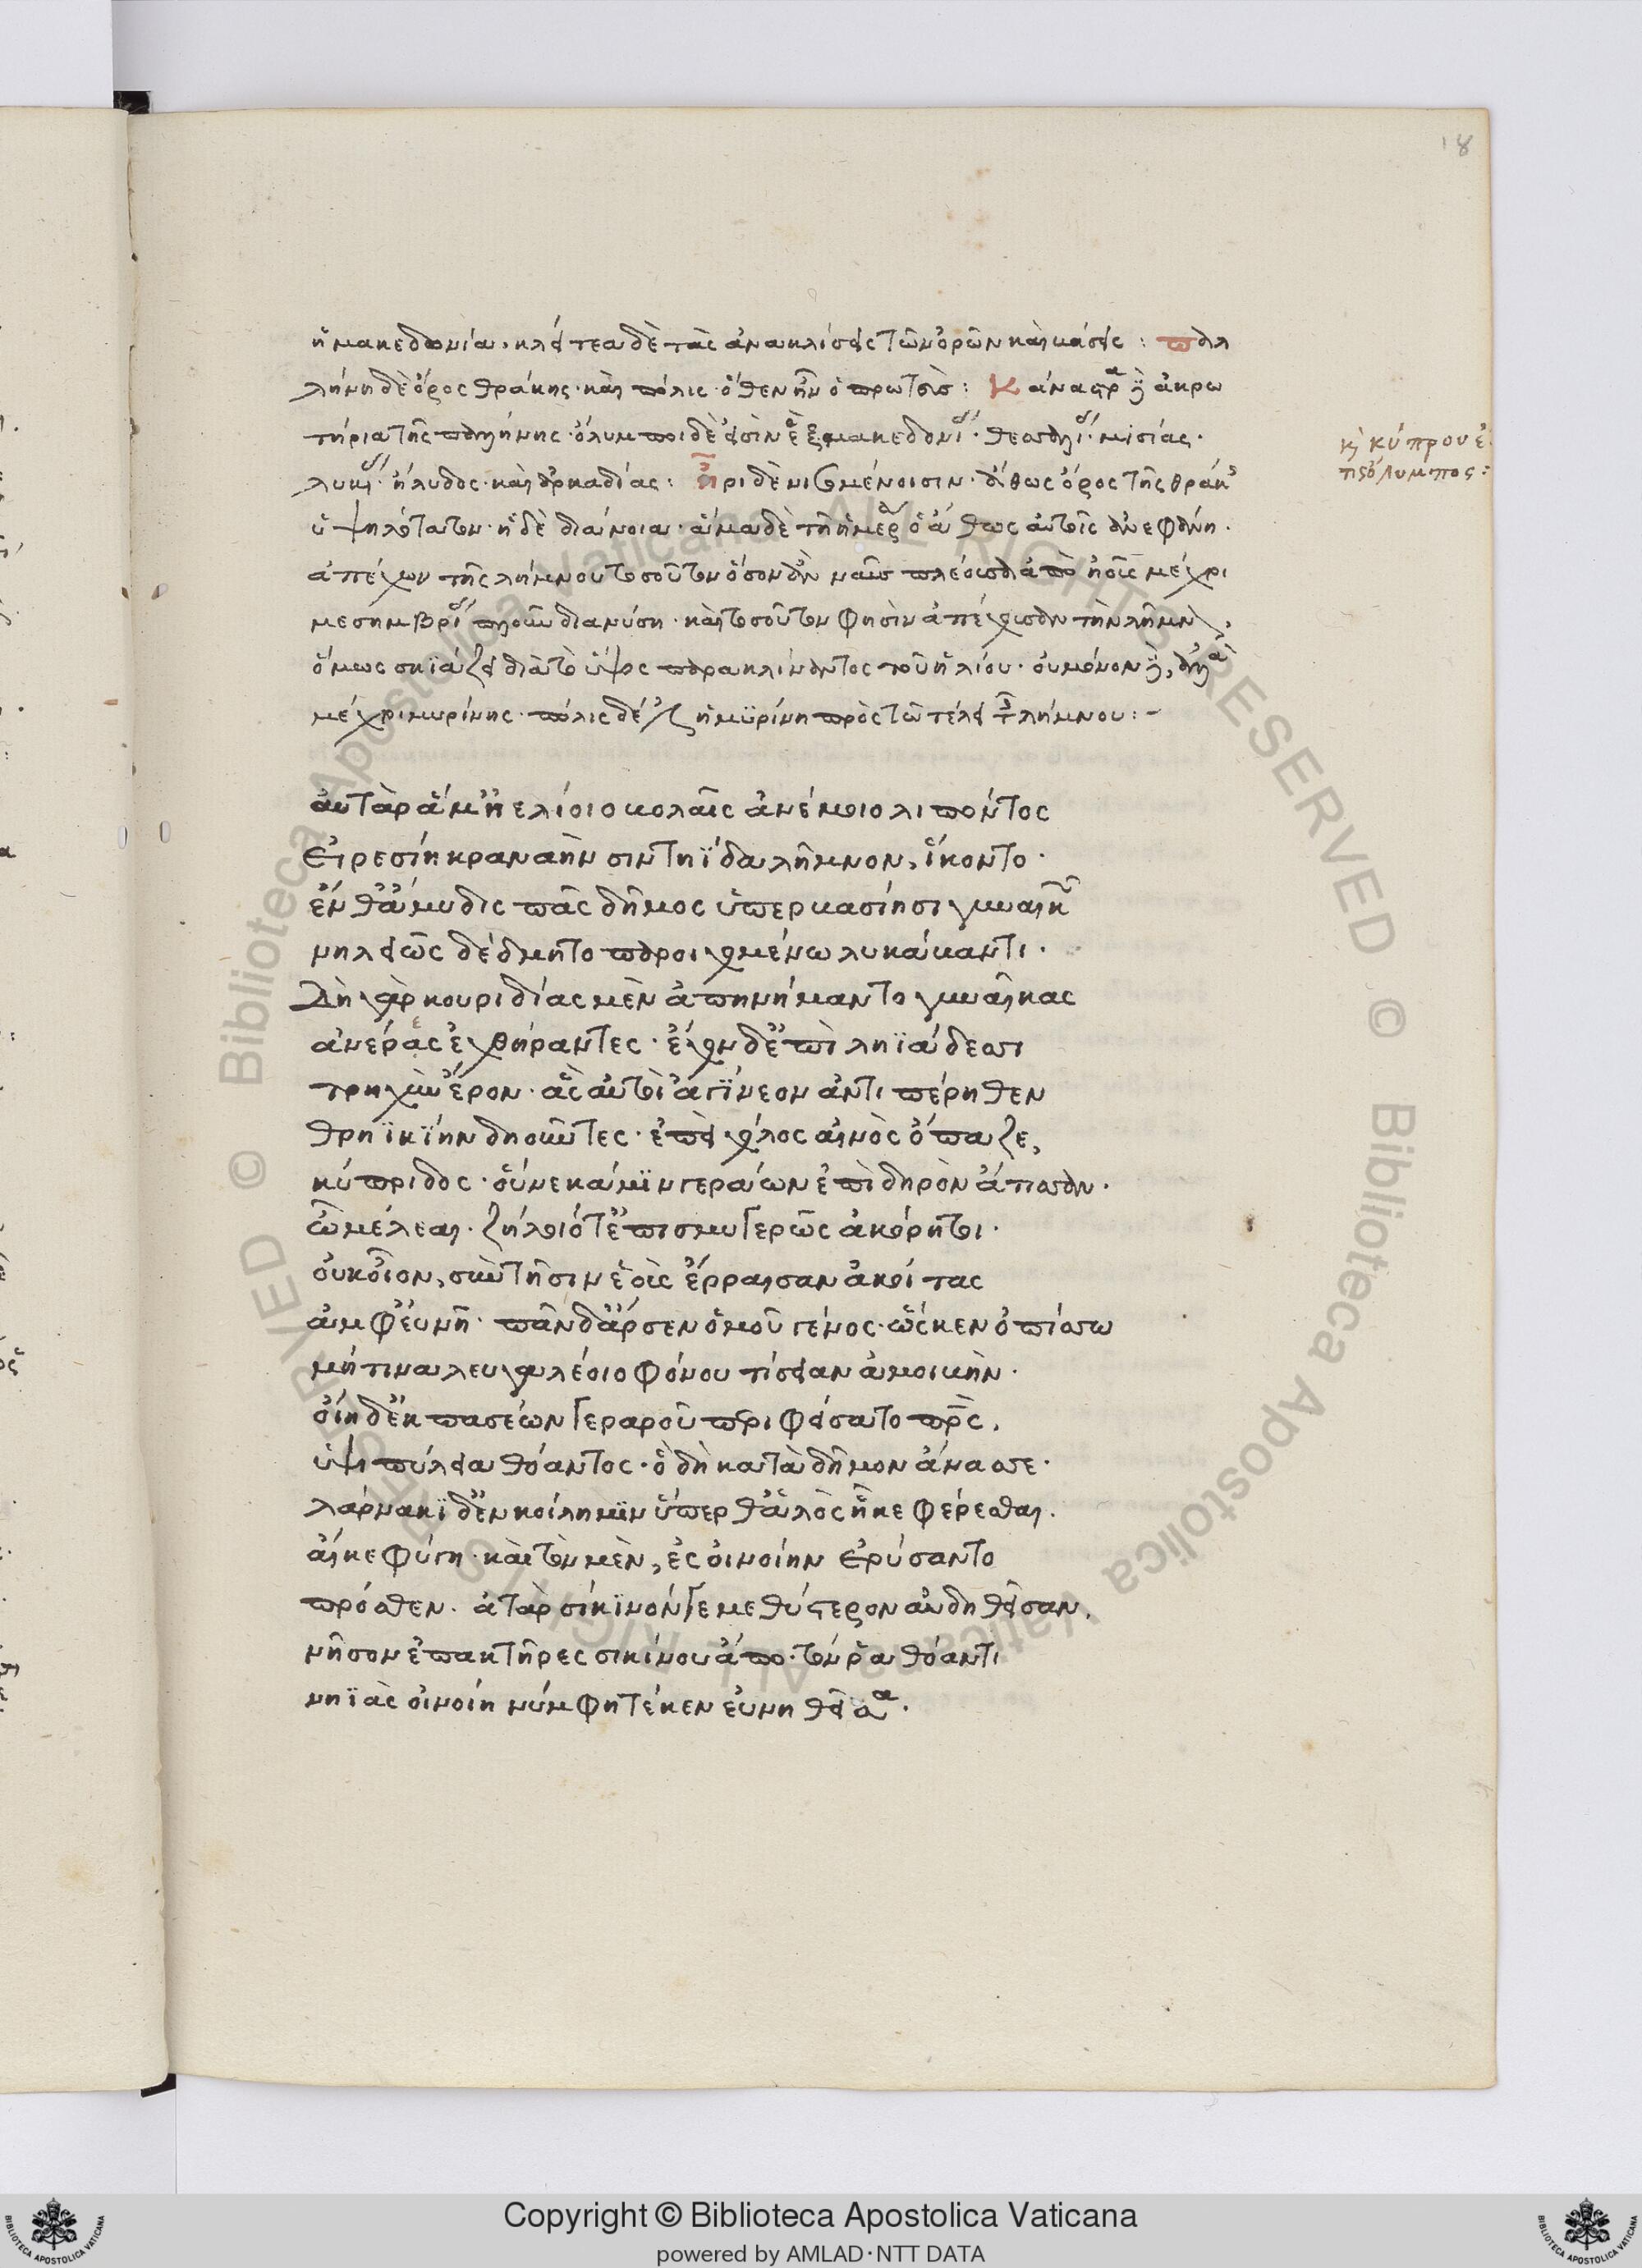 18
ἡ μακεδονία· κλείτεα δὲ τὰς ἀνακλίσεις τῶν ὀρῶν καὶ κάσεις : παλ
λήνη δὲ ὄρος θράκης· καὶ πόλις· ὅθεν ἦν ὁ πρωτεὺς : Κάναστρα ἢ ἀκρω
τήρια τῆς παλλήνης· ὄλυμποι δὲ εἰσὶν ἓξ μακεδονίας· θεσσαλίας· μισίας·
λυκίας· ἤλυδος· καὶ ἀρκαδίας : ἦρι δὲ νισομένοισιν· ἄθως ὄρος τῆς θράκης
ὑψηλότατον· ἡ δὲ διάνοια· ἅμα δὲ τῇ ἡμέρᾳ ὁ ἄθως αὐτοῖς ἀνεφάνη·
ἀπέχων τῆς λήμνου τοσοῦτον ὅσον ἂν ναῦς πλέουσα ἀπὸ ἠοῦς μέχρι
μεσημβρίας πλοῦν διανύση· καὶ τοσοῦτον φησὶν ἀπέχουσαν τὴν λῆμνον,
ὅμως σκϊάζει διὰ τὸ ὕψος παρακλίναντος τοῦ ἡλίου· οὐ μόνον δὲ, ἀλλὰ
μέχρι μυρίνης· πόλις δέ ἐστιν ἡ μϋρίνη πρὸς τῶ τέλει τῆς λήμνου :-
κὶ κύπρου ἐ
τις ὄλυμπος :
αὐτὰρ ἅμ' ἠελίοιο βολαῖς ἀνέμοιο λιπόντος
Εἰρεσίη κραναὴν σιντηΐδα λῆμνον, ἵκοντο·
ἔνθ' ἄμυδις πᾶς δῆμος ὑπερβασίησι γυναικῶν
νηλειῶς δέδμητο παροιχομένω λυκάβαντι·
Δὴ γὰρ κουριδίας μὲν ἀπηνήναντο γυναῖκας
ἀνέρας ἐχθήραντες· ἔχον δ' ἐπὶ ληϊάδεσσι
τρηχὺν ἔρον· ἃς αὐτοὶ ἀγΐνεον ἀντιπέρηθεν
θρηϊκΐην δηοῦντες· ἐπεὶ χόλος αἰνὸς ὄπαζε,
κύπριδος· οὕνεκά μϊν γεράων ἐπὶ δηρὸν ἄτισσαν·
ὦ μέλεαι· ζήλοιό τ' ἐπισμυγερῶς ἀκόρητοι·
οὐκ οἶον, σὺν τῆσιν ἑοὺς ἔρραισαν ἀκοίτας
ἀμφ' εὐνῆ· πᾶν δ' ἄρσεν ὁμοῦ γένος· ὥς κεν ὀπίσσω
μήτινα λευγαλέοιο φόνου τίσειαν ἀμοιβὴν·
οἴη δ' ἐκ πασέων γεραροῦ περιφείσατο πατρὸς,
ὑψιπύλεια θόαντος· ὃ δὴ κατὰ δῆμον ἄνασσε·
λάρνακϊ δ' ἐν κοίλη μϊν ὕπερθ' ἁλὸς ἧκε φέρεσθαι·
αἴκε φύγη· καὶ τὸν μὲν, ἐς οἰνοίην ἐρύσαντο
πρόσθεν· ἀτὰρ σίκϊνόν γε μεθύστερον αὐδηθεῖσαν,
νῆσον ἐπακτῆρες σικίνου ἄπο· τόν ῥα θόαντι
νηϊὰς οἰνοίη νύμφη τέκεν εὐνηθεῖσα·
Copyright © Biblioteca Apostolica Vaticana
powered by AMLAD·NTT DATA